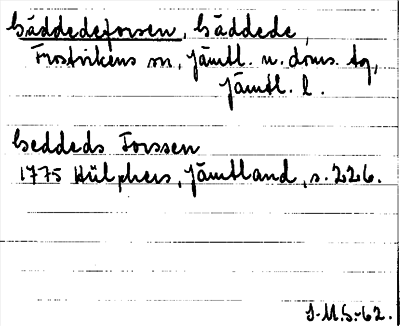 Gäddedeforsen, Gäddede,
Frostvikens sn, Jämtl. n. doms. tg,
Jämtl. l.
Geddeds Forssen
1775 Hülphers, Jämtland, s. 226.
J-M.S-62.